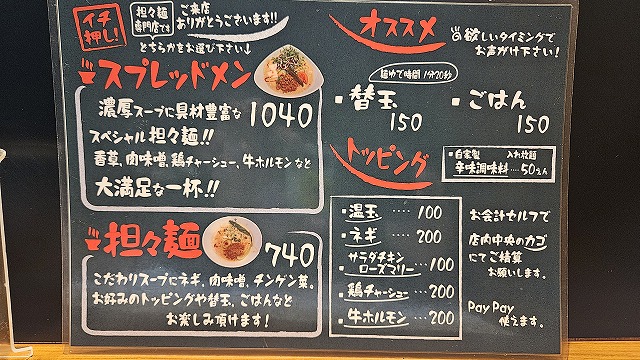 イチ押し!
担々麺専門店です
ご来店
ありがとうございます!!
どちらかをお選び下さい↓
スプレッドメン
濃厚スープに具材豊富な
1040
スペシャル担々麺!!
香草、肉味噌、鶏チャーシュー、牛ホルモンなど
大満足な一杯!!
担々麺
740
こだわりスープにネギ、肉味噌、チンゲン菜。
お好みのトッピングや替玉、ごはんなど
お楽しみ頂けます!
オススメ
欲しいタイミングで
お声がけ下さい!
麺ゆで時間 1分20秒
・替玉
150
・ごはん
150
トッピング
・自家製 入れ放題
辛味調味料‥‥50えん
・温玉 ‥‥ 100
・ネギ ‥‥ 200
サラダチキン
・ローズマリー‥100
・鶏チャーシュー‥200
・牛ホルモン‥‥200
お会計セルフで
店内中央のカゴ
にてご精算
お願いします。
PayPay
使えます。